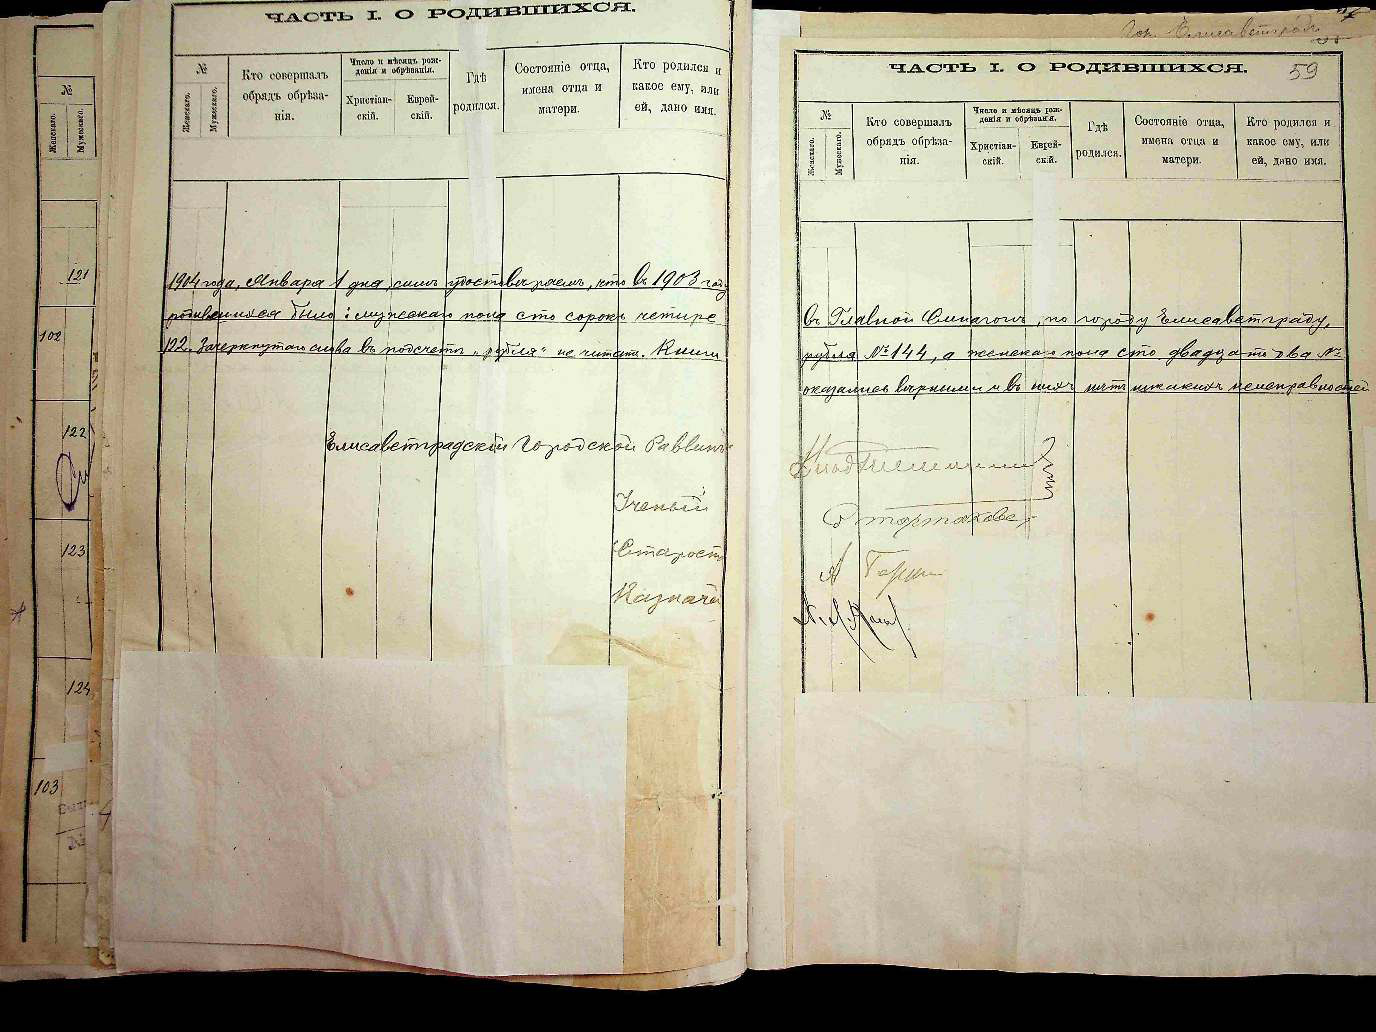 №
Женскаго.
Мужескаго.
121
102
122
123
124
103
ЧАСТЬ I. О РОДИВШИХСЯ.
№
Женскаго.
Мужескаго.
Кто совершалъ
обрядъ обрѣза-
нія.
Число и мѣсяцъ рож-
денія и обрѣзанія.
Христіан-
скій.
Еврей-
скій.
Гдѣ
родился.
Состояніе отца,
имена отца и
матери.
Кто родился и
какое ему, или
ей, дано имя.
1904 года, Января 1 дня, симъ удостовѣряемъ, что въ 1903 году
родившихся было: мужскаго пола сто сорокъ четыре
122. Зачеркнутаго слова въ подсчетѣ „рубля“ не читать. Книги
Елисаветградскій Городской Раввинъ
Ученый
Староста
Казначей
Гор. Елисаветградъ
59
ЧАСТЬ I. О РОДИВШИХСЯ.
№
Женскаго.
Мужескаго.
Кто совершалъ
обрядъ обрѣза-
нія.
Число и мѣсяцъ рож-
денія и обрѣзанія.
Христіан-
скій.
Еврей-
скій.
Гдѣ
родился.
Состояніе отца,
имена отца и
матери.
Кто родился и
какое ему, или
ей, дано имя.
въ Главной Синагогѣ, по городу Елисаветграду,
рубля № 144, а женскаго пола сто двадцать два №
оказались вѣрными и въ нихъ нѣтъ никакихъ неисправностей